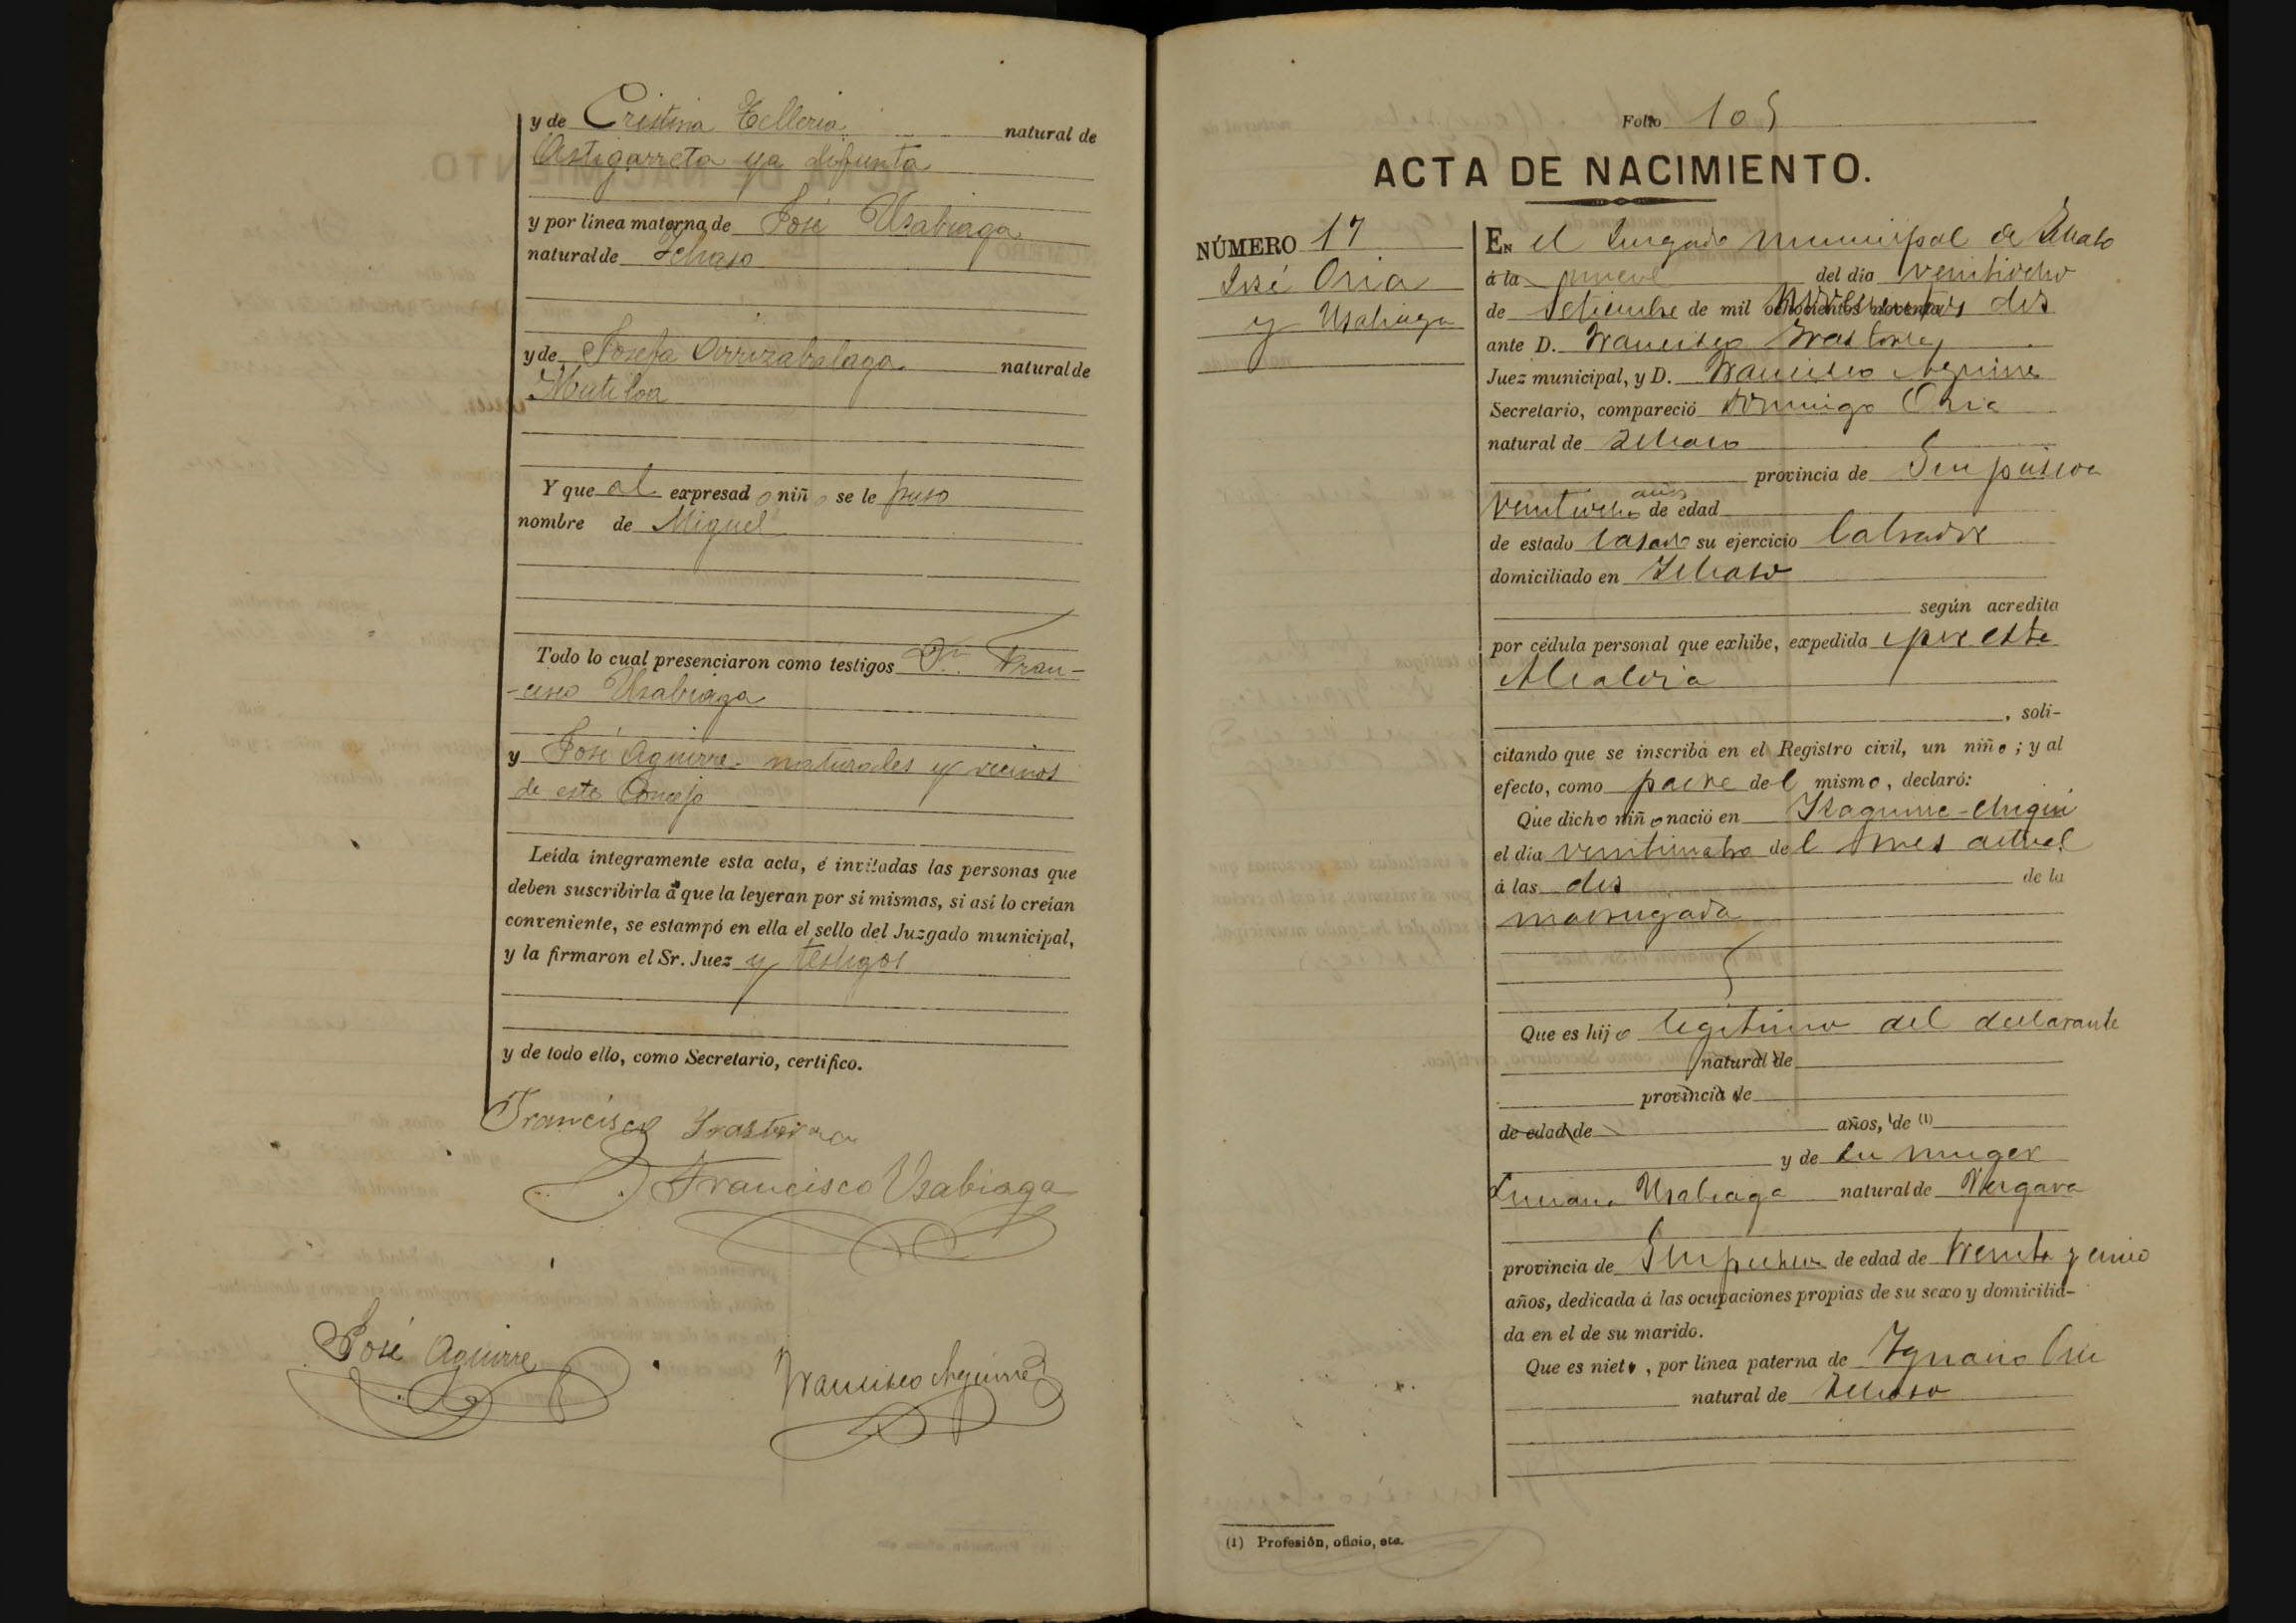 y de Cristina Telleria natural de
Astigarreta ya difunta
y por linea materna de José Usabiaga
natural de Ichaso
y de Josefa Arrizabalaga natural de
Mutiloa
Y que al expresado niño se le puso
nombre de Miguel
Todo lo cual presenciaron como testigos Dn. Fran-
-cisco Usabiaga
y José Aguirre naturales y vecinos
de este Concejo
Leída íntegramente esta acta, é invitadas las personas que
deben suscribirla á que la leyeran por sí mismas, si así lo creían
conveniente, se estampó en ella el sello del Juzgado municipal,
y la firmaron el Sr. Juez y testigos
y de todo ello, como Secretario, certifico.
Francisco Irastorza
Francisco Usabiaga
José Aguirre
Francisco Aguirre
Folio 105
ACTA DE NACIMIENTO.
NÚMERO 17
José Oria
y Usabiaga
En el Juzgado municipal de Ichaso
á la nueve del dia veintiocho
de Setiembre de mil novecientos dos
ante D. Francisco Irastorza,
Juez municipal, y D. Francisco Aguirre
Secretario, compareció Domingo Oria
natural de Ichaso
provincia de Guipúscoa
veintiocho años de edad
de estado casado su ejercicio labrador
domiciliado en Ichaso
según acredita
por cédula personal que exhibe, expedida por esta
Alcaldia
, soli-
citando que se inscriba en el Registro civil, un niño; y al
efecto, como padre del mismo, declaró:
Que dicho niño nació en Izaguirre-chiqui
el dia veinticuatro del mes actual
á las dos de la
madrugada
Que es hijo legitimo del declarante
natural de
provincia de
de edad de años, de (1)
y de su muger
Luciana Usabiaga natural de Vergara
provincia de Guipuscoa de edad de veinte y cinco
años, dedicada á las ocupaciones propias de su sexo y domicilia-
da en el de su marido.
Que es nieto, por linea paterna de Ygnacio Oria
natural de Ichaso
(1) Profesión, oficio, etc.